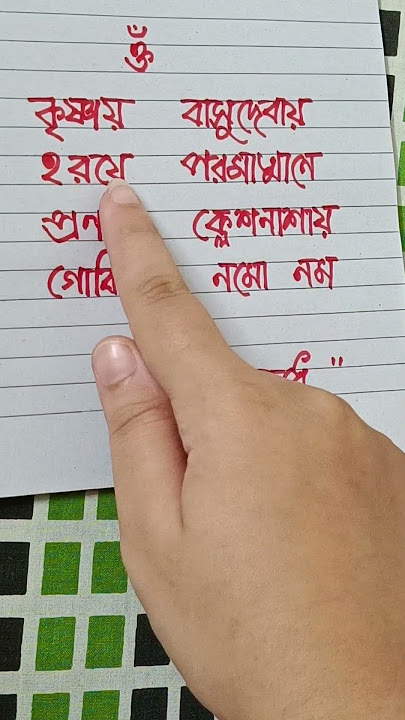 ওঁ
কৃষ্ণায় বাসুদেবায়
হরয়ে পরমাত্মানে
ক্লেশনাশায়
নমো নম